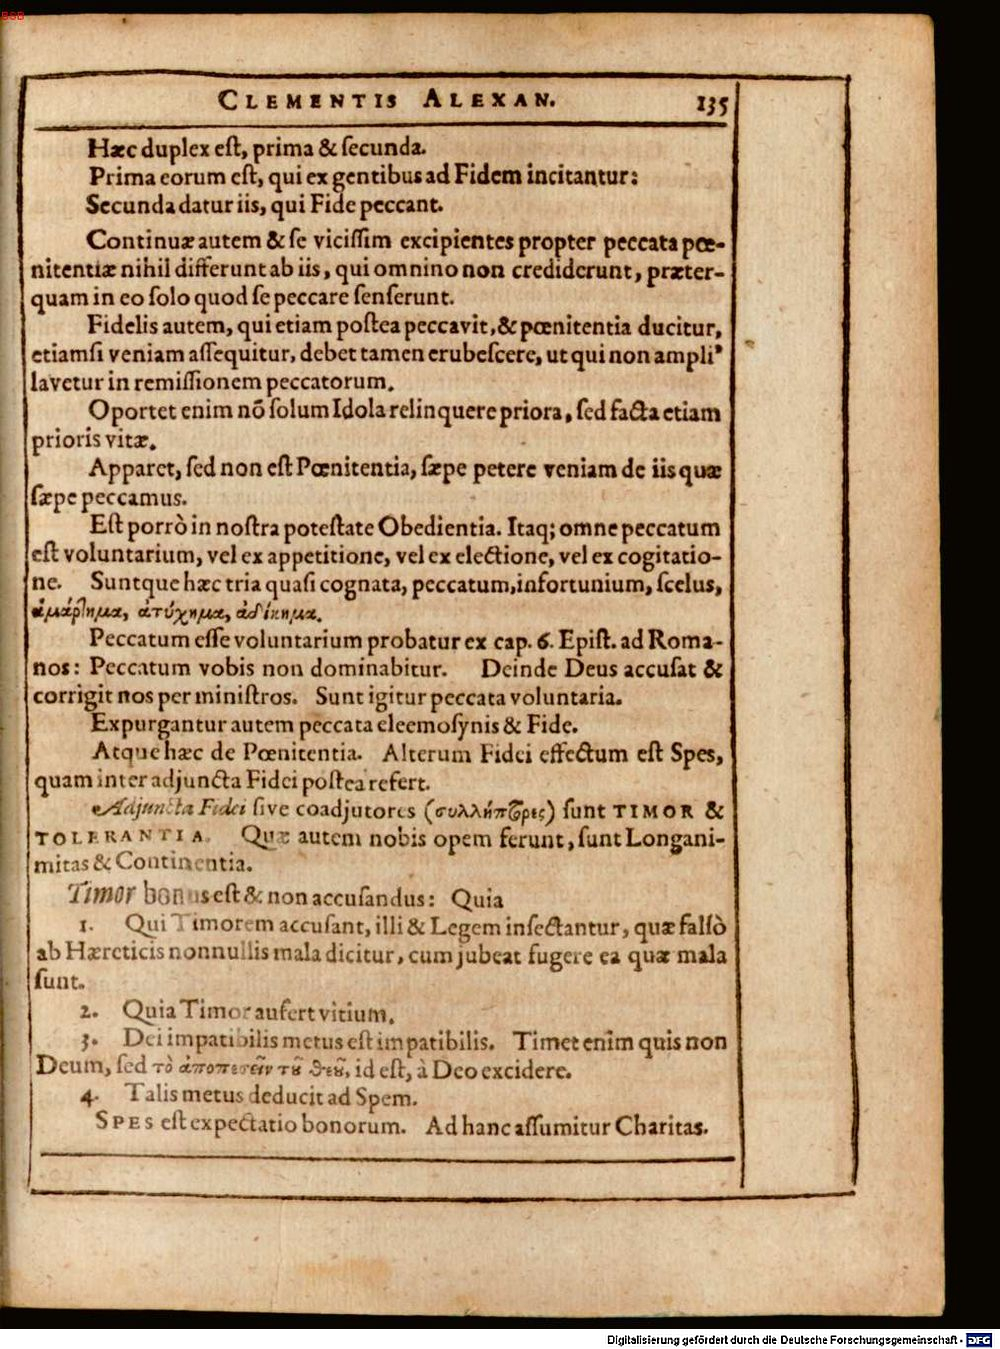 BSB
CLEMENTIS ALEXAN. 135
Hæc duplex eſt, prima & ſecunda.
Prima eorum eſt, qui ex gentibus ad Fidem incitantur:
Secunda datur iis, qui Fide peccant.
Continuæ autem & ſe viciſſim excipientes propter peccata pœ-
nitentiæ nihil differunt ab iis, qui omnino non crediderunt, præter-
quam in eo ſolo quod ſe peccare ſenſerunt.
Fidelis autem, qui etiam poſtea peccavit, & pœnitentia ducitur,
etiamſi veniam aſſequitur, debet tamen erubeſcere, ut qui non ampliꝰ
lavetur in remiſſionem peccatorum.
Oportet enim nõ ſolum Idola relinquere priora, ſed facta etiam
prioris vitæ.
Apparet, ſed non eſt Pœnitentia, ſæpe petere veniam de iis quæ
ſæpe peccamus.
Eſt porrò in noſtra poteſtate Obedientia. Itaq; omne peccatum
eſt voluntarium, vel ex appetitione, vel ex electione, vel ex cogitatio-
ne. Suntque hæc tria quaſi cognata, peccatum, infortunium, ſcelus,
ἁμάρτημα, ἀτύχημα, ἀδίκημα.
Peccatum eſſe voluntarium probatur ex cap. 6. Epiſt. ad Roma-
nos: Peccatum vobis non dominabitur. Deinde Deus accuſat &
corrigit nos per miniſtros. Sunt igitur peccata voluntaria.
Expurgantur autem peccata eleemoſynis & Fide.
Atque hæc de Pœnitentia. Alterum Fidei effectum eſt Spes,
quam inter adjuncta Fidei poſtea refert.
Adjuncta Fidei ſive coadjutores (συλλήπτορες) ſunt TIMOR &
TOLERANTIA. Quæ autem nobis opem ferunt, ſunt Longani-
mitas & Continentia.
Timor bonus eſt & non accuſandus: Quia
1. Qui Timorem accuſant, illi & Legem inſectantur, quæ falſò
ab Hæreticis nonnullis mala dicitur, cum jubeat fugere ea quæ mala
ſunt.
2. Quia Timor aufert vitium.
3. Dei impatibilis metus eſt impatibilis. Timet enim quis non
Deum, ſed τὸ ἀποπεσεῖν τοῦ θεοῦ, id eſt, à Deo excidere.
4. Talis metus deducit ad Spem.
SPES eſt expectatio bonorum. Ad hanc aſſumitur Charitas.
Digitalisierung gefördert durch die Deutsche Forschungsgemeinschaft - DFG